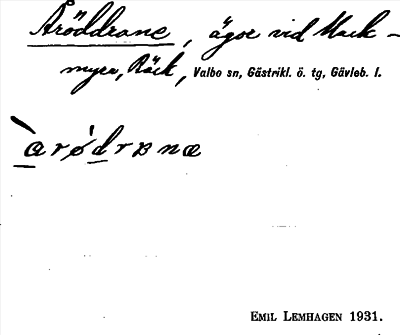 Aröddrane, ägor vid Mack-
myra, Räck, Valbo sn, Gästrikl. ö. tg, Gävleb. l.
arødrɒnæ
EMIL LEMHAGEN 1931.